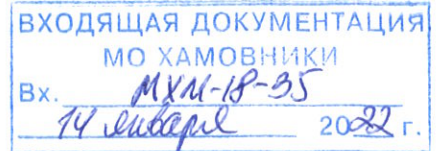 ВХОДЯЩАЯ ДОКУМЕНТАЦИЯ
МО ХАМОВНИКИ
Вх. МХМ-18-35
14 января 2022 г.